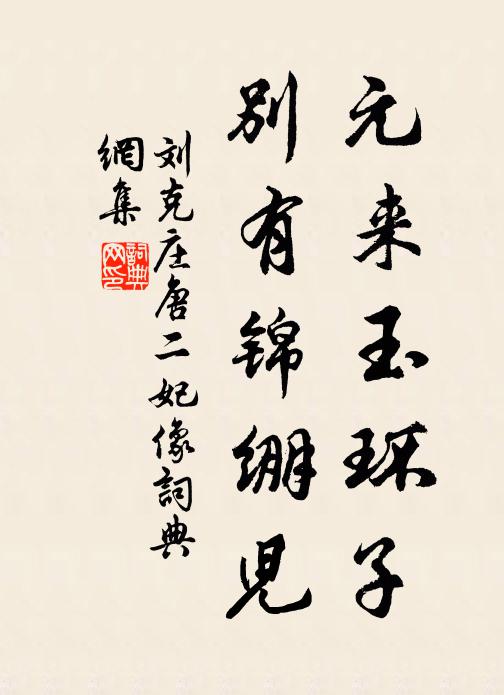 元来玉环子
别有锦绷兒
刘克庄唐二妃像詞典
網集
詞典
网印